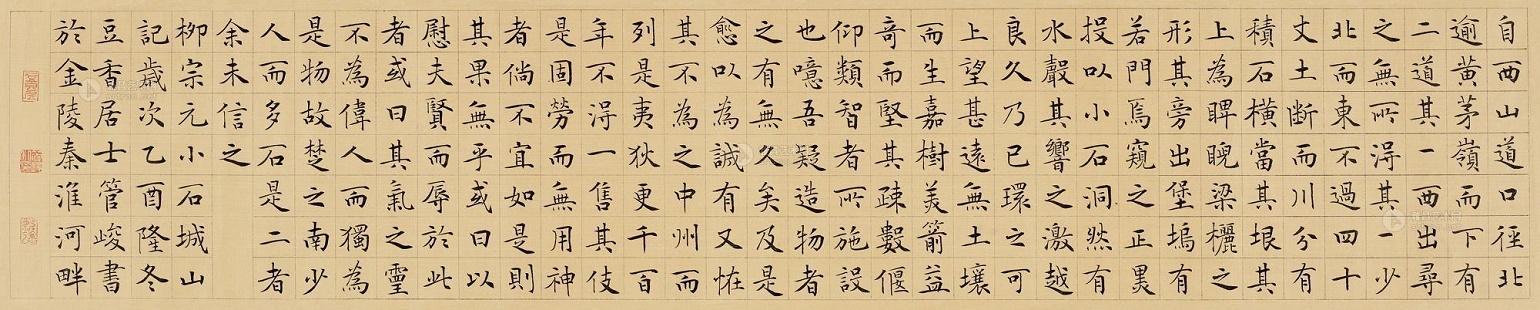 自西山道口徑北
逾黄茅嶺而下有
二道其一西出尋
之無所得其一少
北而東不過四十
丈土斷而川分有
積石橫當其垠其
上為睥睨梁欐之
形其旁出堡塢有
若門焉窺之正黑
投以小石洞然有
水聲其響之激越
良久乃已環之可
上望甚遠無土壤
而生嘉樹美箭益
奇而堅其疎數偃
仰類智者所施設
也噫吾疑造物者
之有無久矣及是
愈以為誠有又怪
其不為之中州而
列是夷狄更千百
年不得一售其伎
是固勞而無用神
者倘不宜如是則
其果無乎或曰以
慰夫賢而辱於此
者或曰其氣之靈
不為偉人而獨為
是物故楚之南少
人而多石是二者
余未信之
柳宗元小石城山
記歲次乙酉隆冬
豆香居士管峻書
於金陵秦淮河畔